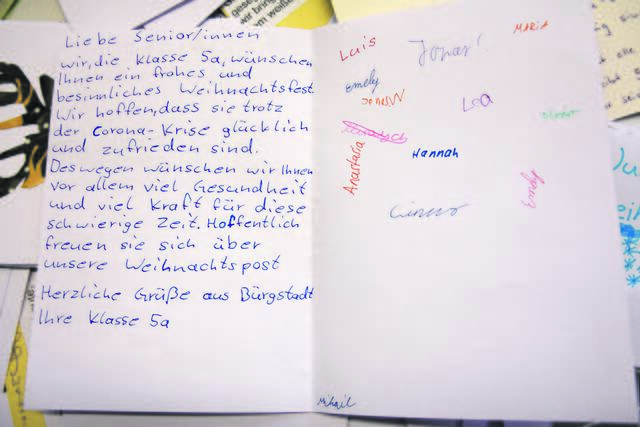 Liebe Senior/innen
wir, die Klasse 5a, wünschen
Ihnen ein frohes und
besinnliches Weihnachtsfest.
Wir hoffen, dass sie trotz
der Corona-Krise glücklich
und zufrieden sind.
Deswegen wünschen wir Ihnen
vor allem viel Gesundheit
und viel Kraft für diese
schwierige Zeit. Hoffentlich
freuen sie sich über
unsere Weihnachtspost
Herzliche Grüße aus Bürgstadt
Ihre Klasse 5a
Luis
Jonas
MARIA
Emely
Lea
Hannah
Anastasia
Emely
Mihail